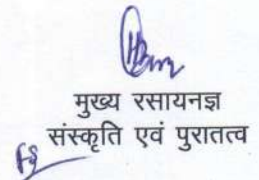 मुख्य रसायनज्ञ
संस्कृति एवं पुरातत्व